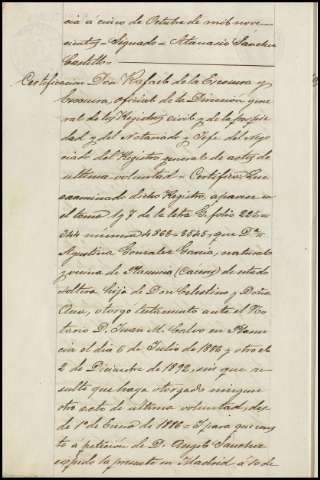 cia á cinco de Octubre de mil nove-
cientos - Signado - Atanasio Sanchez
Castillo -
Certificacion Don Rafael de la Escosura y
Escosura, oficial de la Direccion gene-
ral de los Registros civil y de la propie-
dad y del Notariado y Jefe del Nego-
ciado del Registro general de actos de
ultima voluntad - Certifico: Que
examinado dicho Registro, aparece en
el tomo 1 y 7 de la letra G. folio 226 =
344 numero 4562 = 2545, que Dª
Agustina Gonzalez Garcia, natural
y vecina de Plasencia (Caceres) de estado
soltera hija de Don Celestino y Doña
Ana, otorgó testamento ante el No-
tario D. Juan M. Calvo en Plasen-
cia el dia 6 de Julio de 1886 y otro el
2 de Diciembre de 1892, sin que re-
sulte que haya otorgado ningun
otro acto de ultima voluntad, des-
de 1º de Enero de 1886 - Y para que cons-
te á peticion de D. Angel Sanchez
expido la presente en Madrid á 10 de